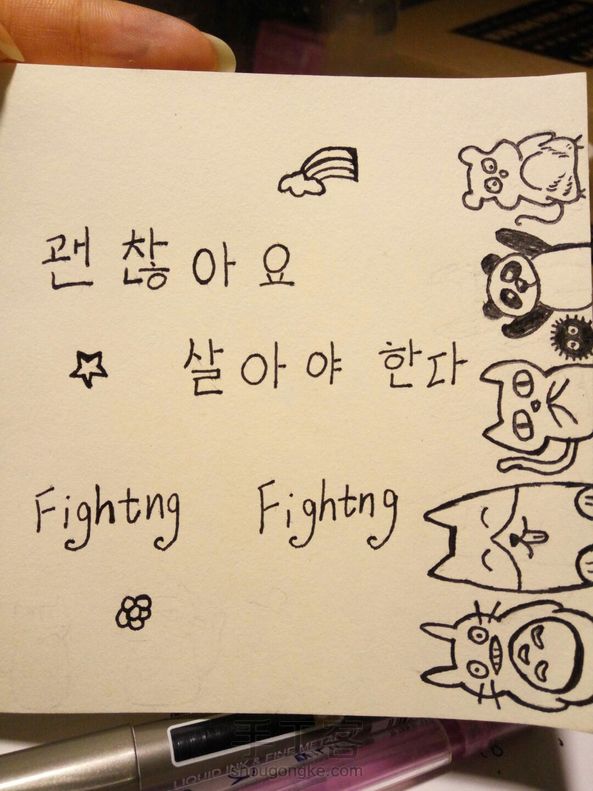 괜찮아요
살아야 한다
Fightng Fightng
LIQUID INK & FINE METAL
手工客
shougongke.com